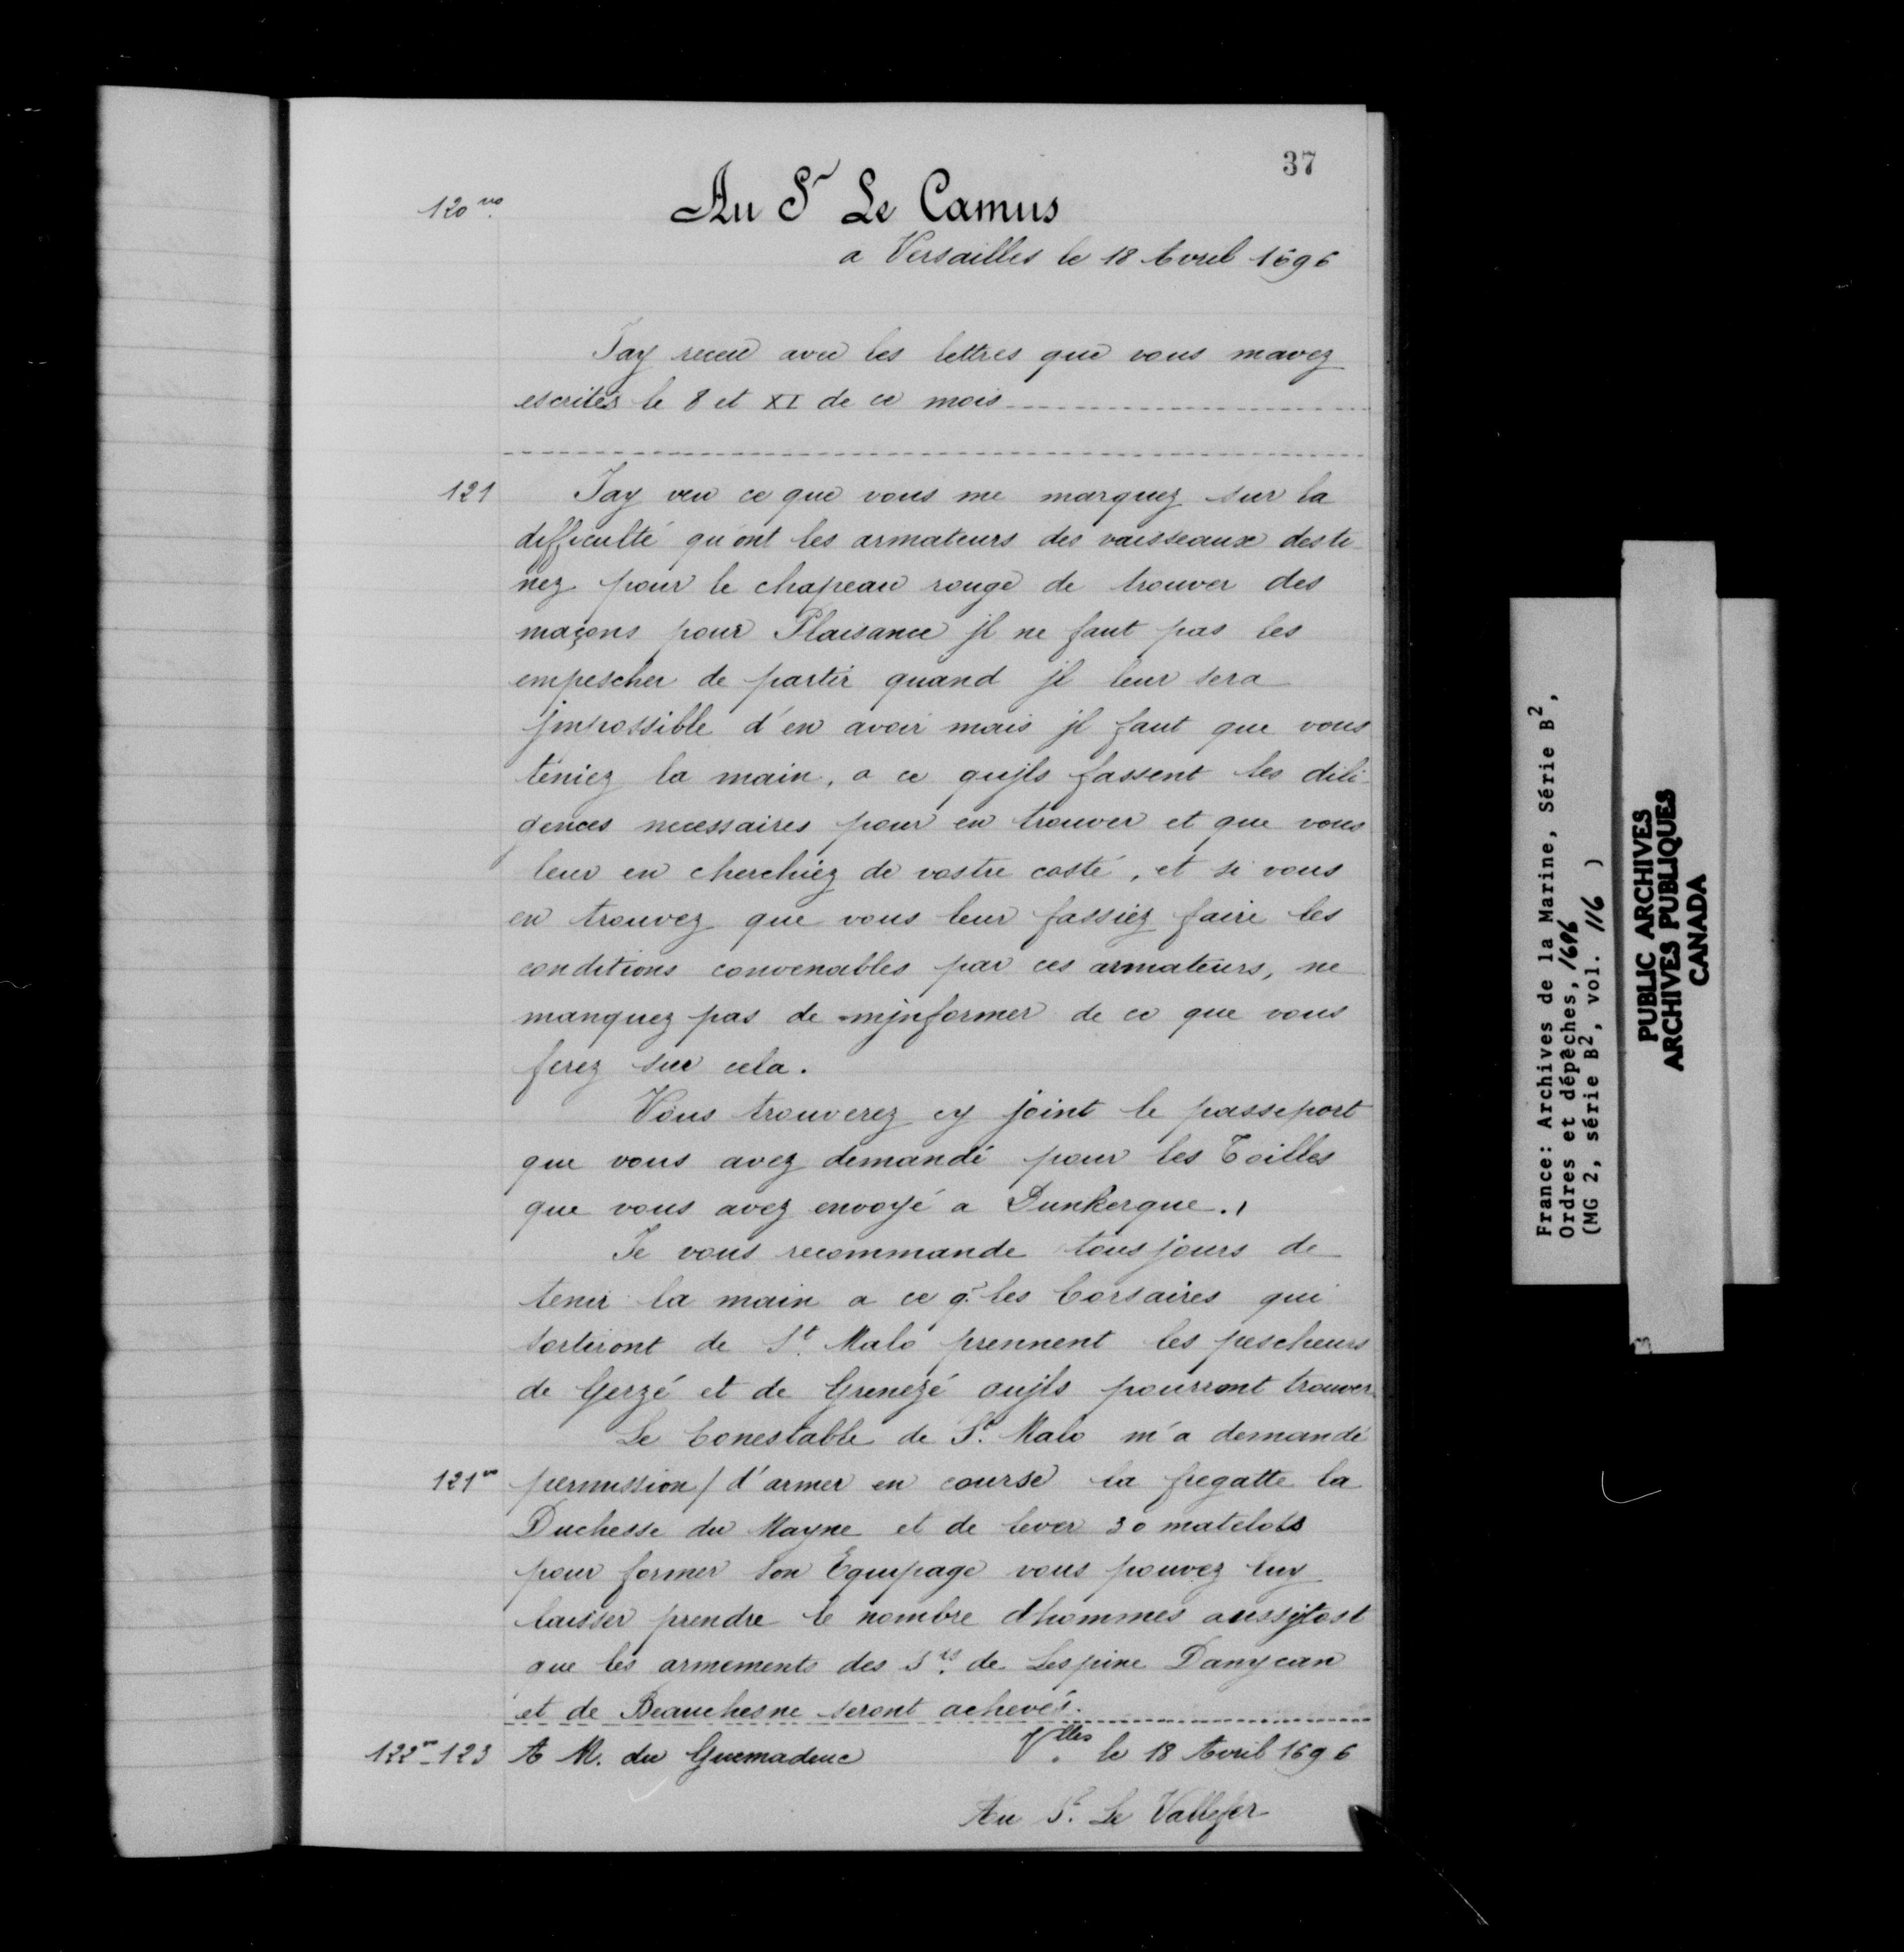 37
120 vo.
Au Sr Le Camus
a Versailles le 18 Avril 1696
Jay receu avec les lettres que vous mavez
escrites le 8 et XI de ce mois
121
Jay veu ce que vous me marquez sur la
difficulté qu'ont les armateurs des vaisseaux desti-
nez pour le chapeau rouge de trouver des
maçons pour Plaisance jl ne faut pas les
empescher de partir quand jl leur sera
jmpossible d'en avoir mais jl faut que vous
teniez la main, a ce qujls fassent les dili-
gences necessaires pour en trouver et que vous
leur en cherchiez de vostre costé, et si vous
en trouvez que vous leur fassiez faire les
conditions convenables par ces armateurs, ne
manquez pas de mjnformer de ce que vous
ferez sur cela.
Vous trouverez cy joint le passeport
que vous avez demandé pour les Toilles
que vous avez envoyé a Dunkerque.
Je vous recommande tousjours de
tenir la main a ce q. les Corsaires qui
sortiront de St. Malo prennent les pescheurs
de Gerzé et de Grenezé qujls pourront trouver
Le Conestable de St. Malo m'a demandé
121 vo
permission / d'armer en course la fregatte la
Duchesse du Mayne et de lever 30 matelots
pour former son Equipage vous pouvez luy
laisser prendre le nombre d'hommes aussytost
que les armements des Srs. de Lespine Danycan
et de Beauchesne seront achevés.
122 vo-123
A M. du Guemadeuc
Vlles. le 18 Avril 1696
Au Sr. Le Vallefer
France: Archives de la Marine, Série B2,
Ordres et dépêches, 1696
(MG 2, série B2, vol. 116 )
PUBLIC ARCHIVES
ARCHIVES PUBLIQUES
CANADA